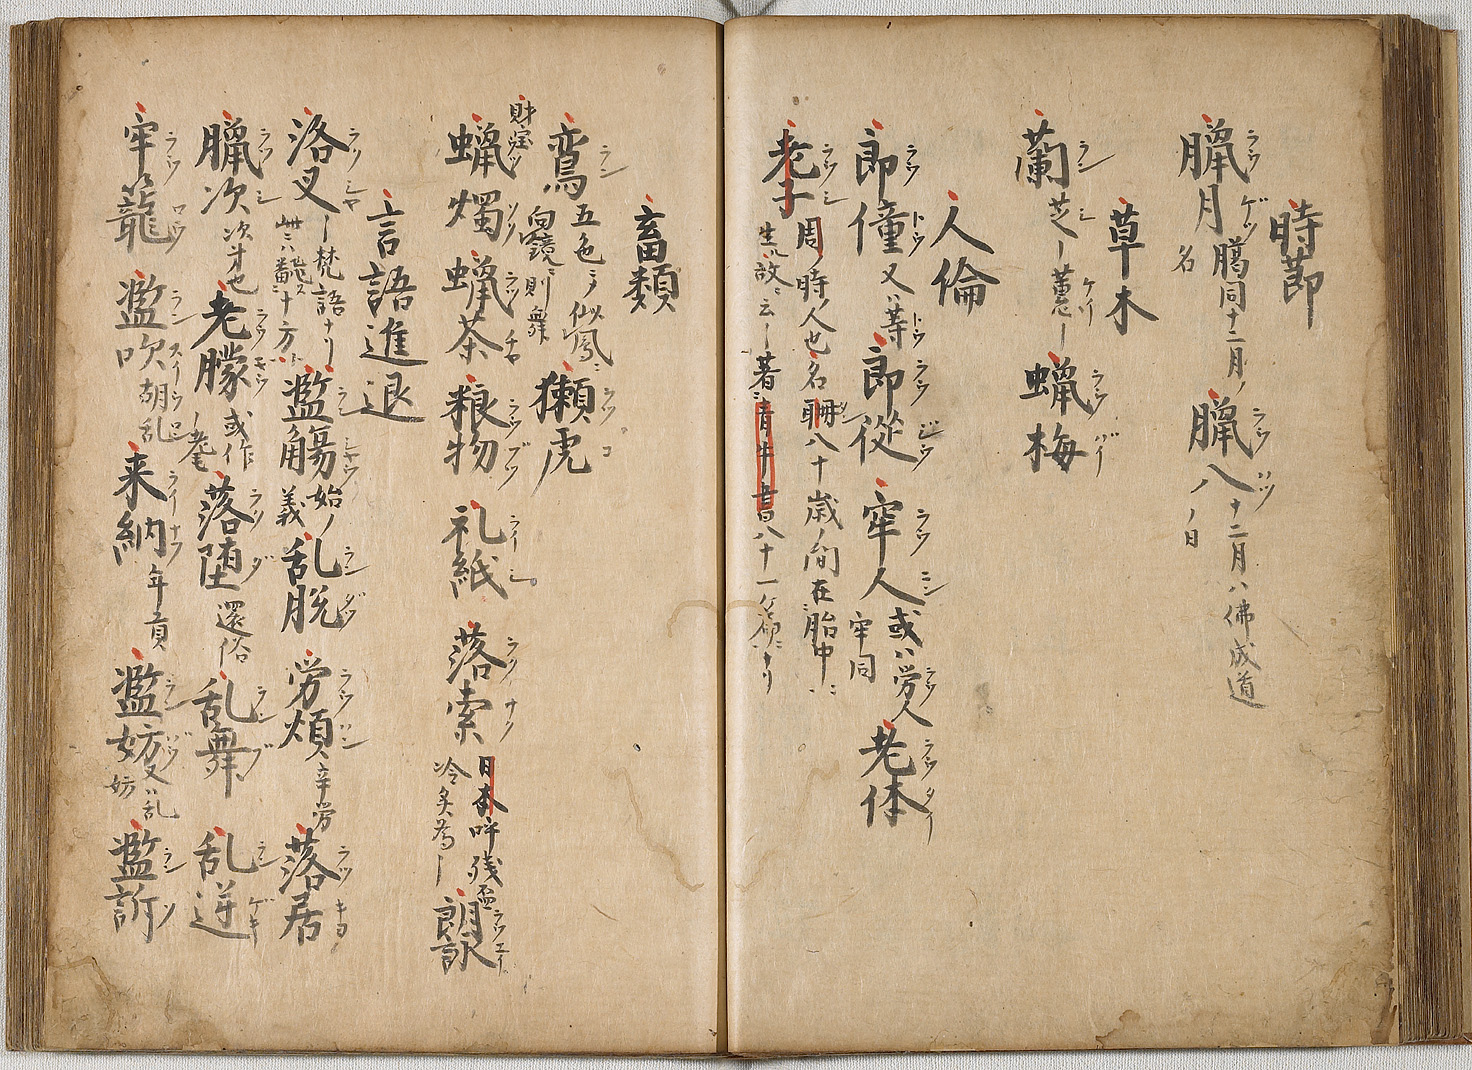 時節
臘月ラウゲツ 臈同十二月ノ名 臘八ラウハツ 十二月八佛成道ノ日
草木
蘭ラン 芝シ 蕙ケイ 蠟梅ラウバイ
人倫
郎僮ラウトウ 又ハ等トウ 郎從ラウジウ 牢人ラウニン 或ハ労人ラウ 牢同 老体ラウタイ
老子ラウシ 周ノ時ノ人也名耼八十歳ノ間在胎中ニ
生ル故ニ云ー著青牛書八十一ケ
畜類
鸞ラン 五色ニノ似鳳ニ向鏡ニ則舞 獺虎ラツコ
財宝 蠟燭ラツソク 蠟茶ラツチヤ 粮物ラウブツ 礼紙ライシ 落索ラクサク 日本呼残盃冷炙為ー 朗詠ラウエイ
言語進退
洛叉ラクシヤ ー梵語ナリ 此ニハ 十方ト 濫觴ランシヤウ 始ノ義 乱脱ランダツ 労煩ラウハン 辛労 落居ラツキヨ
臘次ラツシ 次才也 老朦ラウモウ 或作老耄 落堕ラクダ 還俗 乱舞ランブ 乱逆ランゲキ
牢籠ラウロウ 濫吹ランスイ 胡乱ウロン 来納ライナフ 年貢 濫妨ランバウ 又ハ乱妨 濫訴ランソ